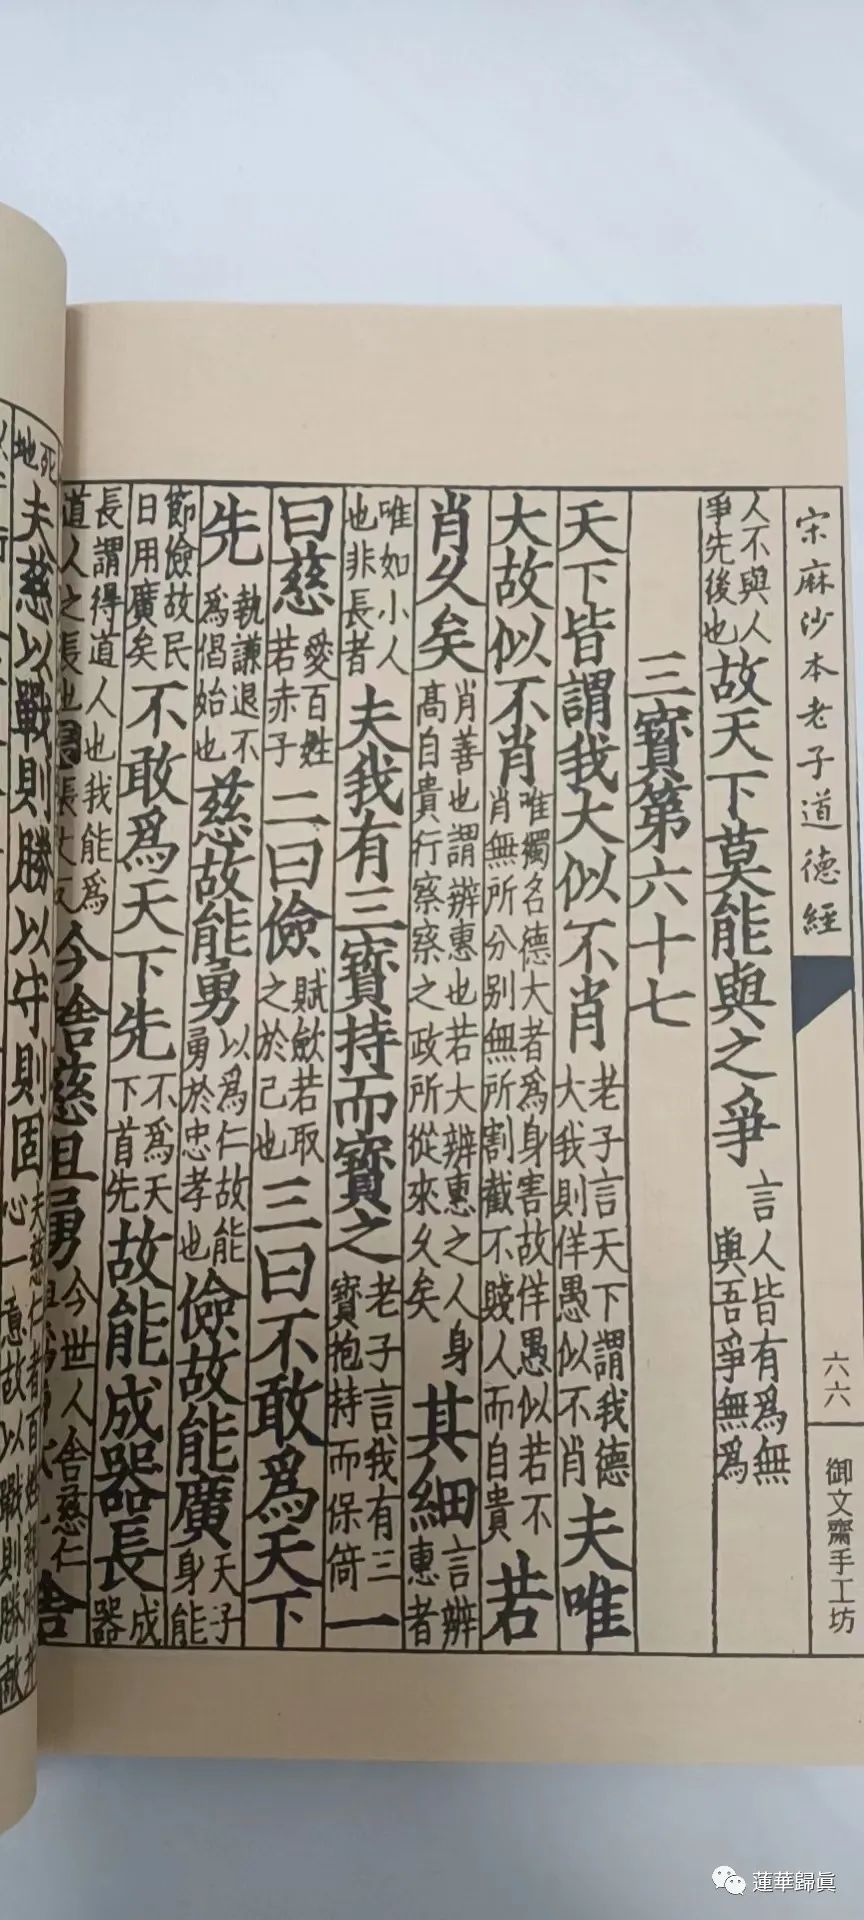 宋麻沙本老子道德經
六六
御文齋手工坊
人不與人爭先後也故天下莫能與之爭言人皆有爲無與吾爭無爲
三寶第六十七
天下皆謂我大似不肖老子言天下謂我德大我則佯愚似不肖夫唯
大故似不肖唯獨名德大者爲身害故佯愚似若不肖無所分别無所割截不賤人而自貴若
肖久矣肖善也謂辨惠也若大辨惠之人身高自貴行察察之政所從來久矣其細言辨惠者
唯如小人也非長者夫我有三寶持而寶之老子言我有三寶抱持而保倚一
曰慈愛百姓若赤子二曰儉賦斂若取之於己也三曰不敢爲天下
先執謙退不爲倡始也慈故能勇以爲仁故能勇於忠孝也儉故能廣天子身能
節儉故民日用廣矣不敢爲天下先不爲天下首先故能成器長成器
長謂得道人也我能爲道人之長也今舍慈且勇今世人舍慈仁舍
死地夫慈以戰則勝以守則固夫慈仁者百姓心一意故以戰則勝敵
蓮華歸眞